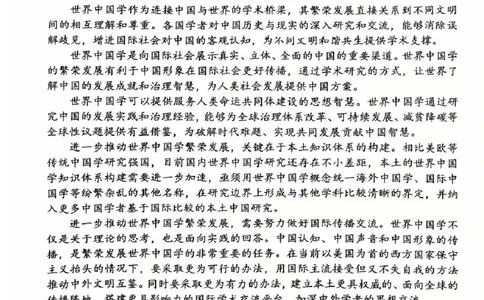 世界中国学作为连接中国与世界的学术桥梁,其繁荣发展直接关系到不同文明
间的相互理解和尊重。各国学者对中国历史与现实的深入研究和交流,能够消除误
解歧见,增进国际社会对中国的客观认知,为不同文明和谐共生提供学术支撑。
世界中国学是向国际社会展示真实、立体、全面的中国的重要渠道。世界中国学
的繁荣发展有利于中国形象在国际社会更好传播,通过学术研究的方式,让世界了
解中国的发展成就和治理智慧,为人类社会发展提供中国方案。
世界中国学可以提供服务人类命运共同体建设的思想智慧。世界中国学通过研
究中国的发展实践和治理经验,能够为全球治理体系改革、可持续发展、减贫降碳等
全球性议题提供有益借鉴,为破解时代难题、实现共同发展贡献中国智慧。
进一步推动世界中国学繁荣发展,关键在于本土知识体系的构建。相比美欧等
传统中国学研究强国,目前国内世界中国学研究还存在不小差距,本土的世界中国
学知识体系构建需要进一步加速,亟须用世界中国学概念统一海外中国学、国际中
国学等纷繁杂乱的其他名称,在研究边界上形成与其他学科比较清晰的界定,并纳
入更多中国学者基于国际比较的本土中国研究。
进一步推动世界中国学繁荣发展,需要努力做好国际传播交流。世界中国学不
仅是关于理论的思考,也是面向实践的回答。中国认知、中国声音和中国形象的传
播,是繁荣发展世界中国学的非常重要的任务。在当前以美国为首的西方国家保守
主义抬头的情况下,要采取更为可行的办法,用国际主流接受但又不失自我的方法
推动中外文明互鉴。同时要采取更为有力的办法,建立本土更具权威的、面向全球的
传播阵地,搭建更具影响力的国际学术交流平台,加深中外学者的思想交流。